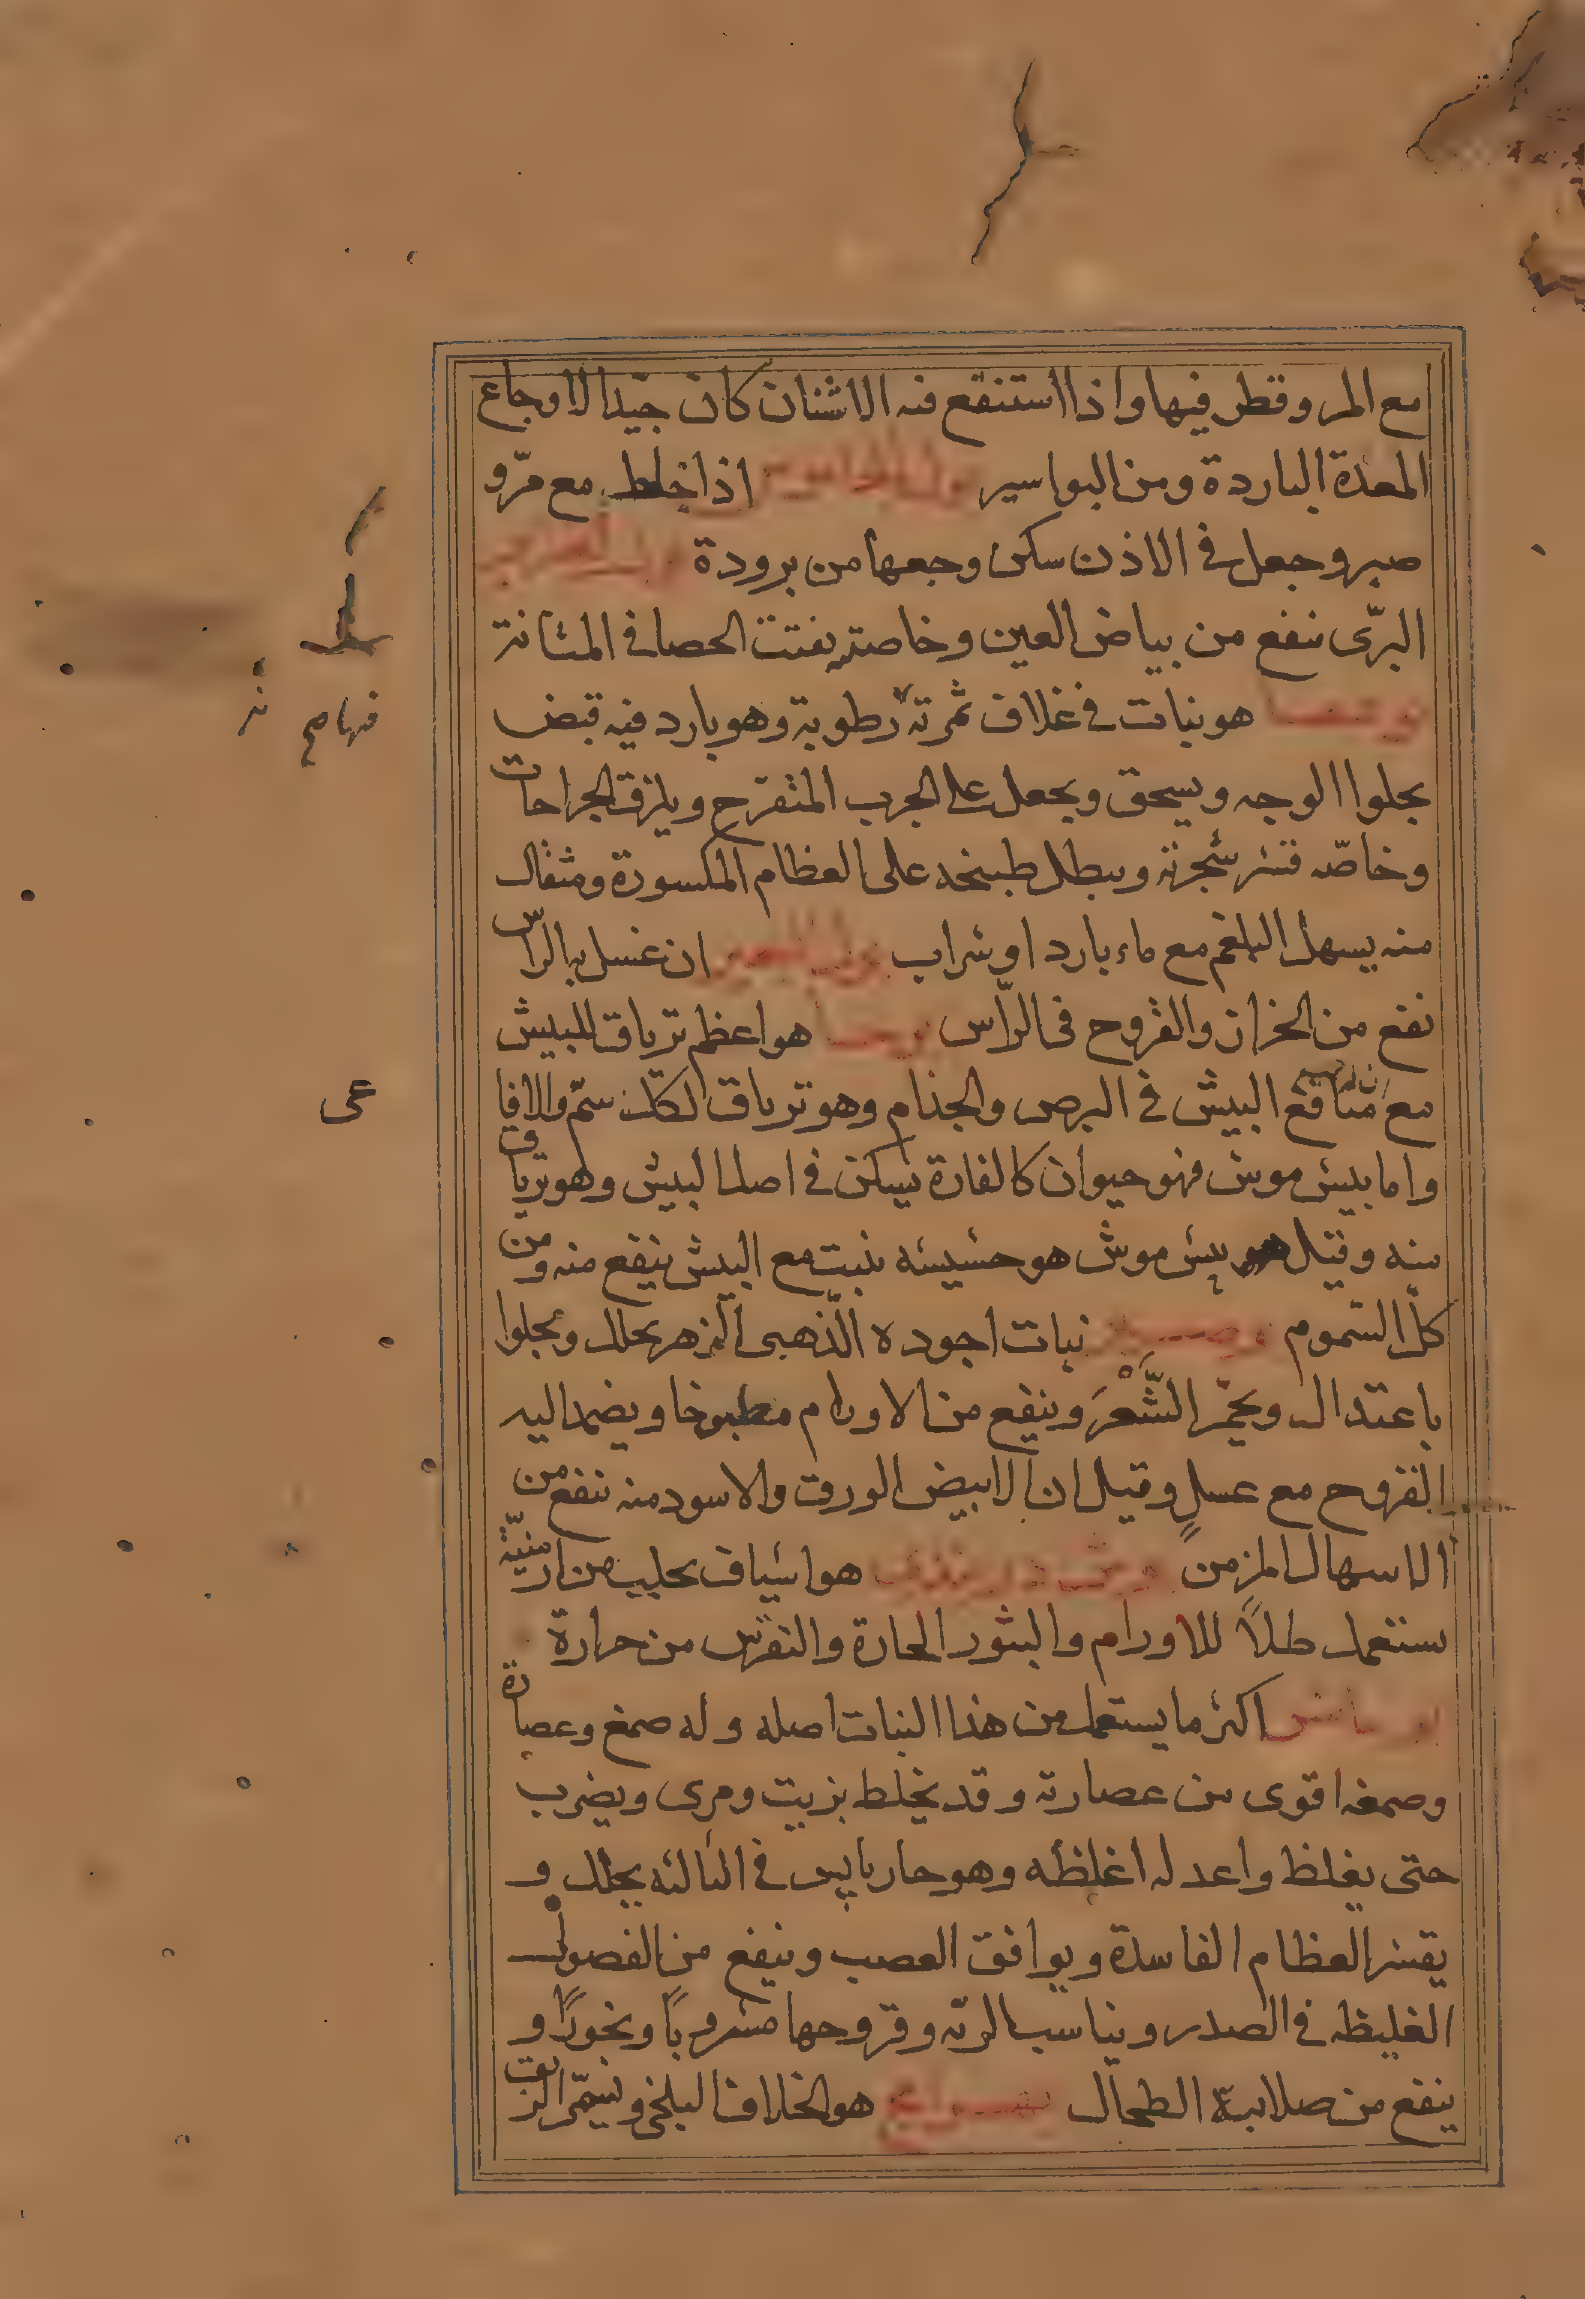 مع المر وقطر فيها واذا استنقع فيه الاشنان كان جيّدا لاوجاع
المعدة الباردة ومن البواسير اذا خلط مع مرّ و
صبر وجعل في الاذن سكن وجعها من برودة
البرّى ينفع من بياض العين وخاصته يفتت الحصا في المثانة
هو نبات في غلاف ثمرته رطوبة وهو بارد فيه قبض
يجلوا الوجه ويسحق ويجعل على الجرب المتقرح ويلزق الجراحات
وخاصّه قشر شجرته ويطل طبيخه على العظام المكسورة ومثقال
منه يسهل البلغم مع ماء بارد او شراب ان غسل به الراس
نفع من الخزاز والقروح في الرّأس هو اعظم ترياق للبيش
مع منافع البيش في البرص والجذام وهو ترياق لكل سمّ والافا
واما بيش موش فهو حيوان كالفارة يسكن في اصل البيش وهو ترياق
منه وقيل بيش موش هو حشيشه نبت مع البيش ينفع منه ومن
كلّ السّموم نبات اجوده الذّهبى الزهر يحلل ويجلوا
باعتدال ويحمّر الشَّعْرَ وينفع من الاورام مطبوخا ويضمد اليه
القروح مع عسلٍ وقيل ان الابيض الورق والاسود منه ينفع من
الاسهال المزمن هو اشياف يجلب من ارمنيّة
يستعمل طلاً للاورام والبثور الحارة والنقرس من حرارة
اكثر ما يستعمل من هذا النبات اصله وله صمغ وعصارة
وصمغه اقوى من عصارته وقد يخلط بزيت ومرى ويضرب
حتى يغلظ واعدله اغلظه وهو حار يابس في الثالثه يحلل و
يقشر العظام الفاسدة ويوافق العصب وينفع من الفصول
الغليظه في الصدر ويناسب الرئه وقروحها مشروباً وبخوراً و
ينفع من صلابة الطحال هو الخلاف البلخى ونسيمّر الزيت